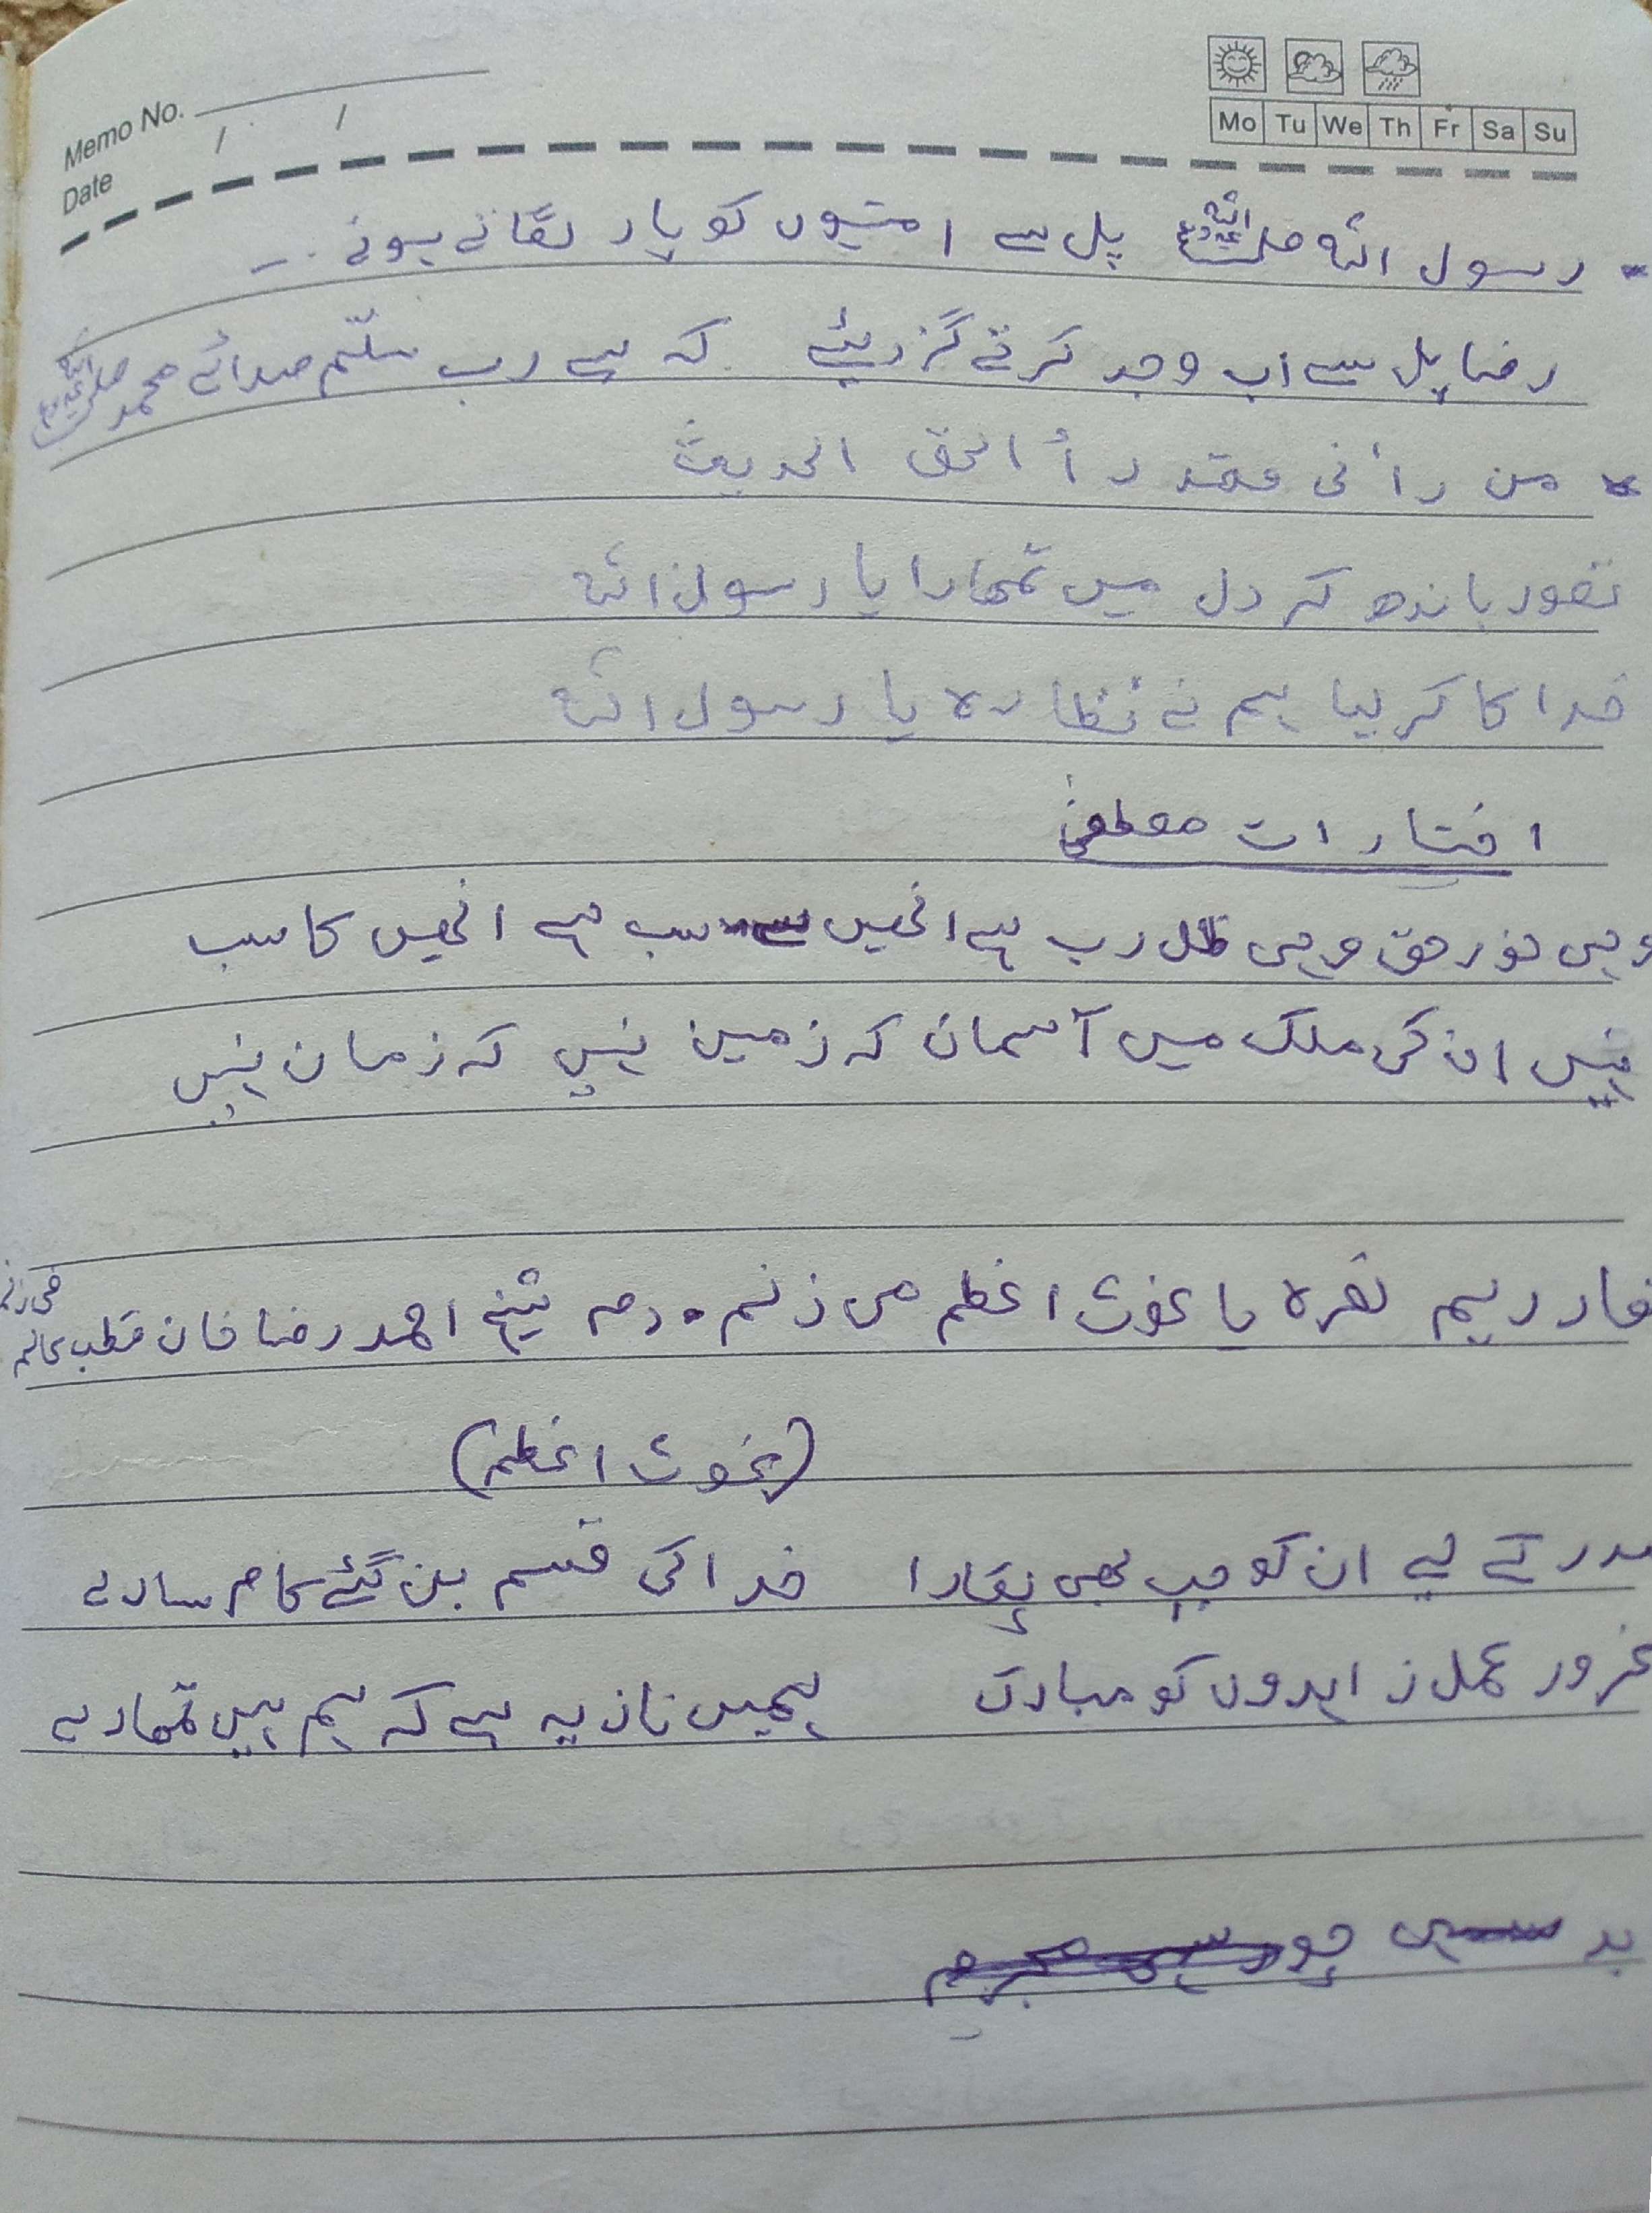 Memo No.
Date / /
Mo Tu We Th Fr Sa Su
- رسول اللہ صلی اللہ علیہ وسلم پل سے امتیوں کو پار لگاتے ہوئے ...
رضا پل سے اب وجد کرتے گزریئے کہ ہے رب سلّم صدائے محمد صلی اللہ علیہ وسلم
من رأنی فقد رأ الحق الحدیث
تصور باندھ کر دل میں تمھارا یا رسول اللہ
خدا کا کر لیا ہم نے نظارہ یا رسول اللہ
اختیارات مصطفیٰ
وہی نور حق وہی ظل رب ہے انھیں سے سب ہے انھیں کا سب
نہیں ان کی ملک میں آسمان کہ زمین نہیں کہ زمان نہیں
قادریم نعرہ یا غوث اعظم می زنم دم شیخ احمد رضا خان قطب عالم می زنم
(غوث اعظم)
مدد کے لیے ان کو جب بھی پکارا خدا کی قسم بن گئے کام سارے
غرور عمل زاہدوں کو مبارک ہمیں ناز یہ ہے کہ ہم ہیں تمھارے
بد